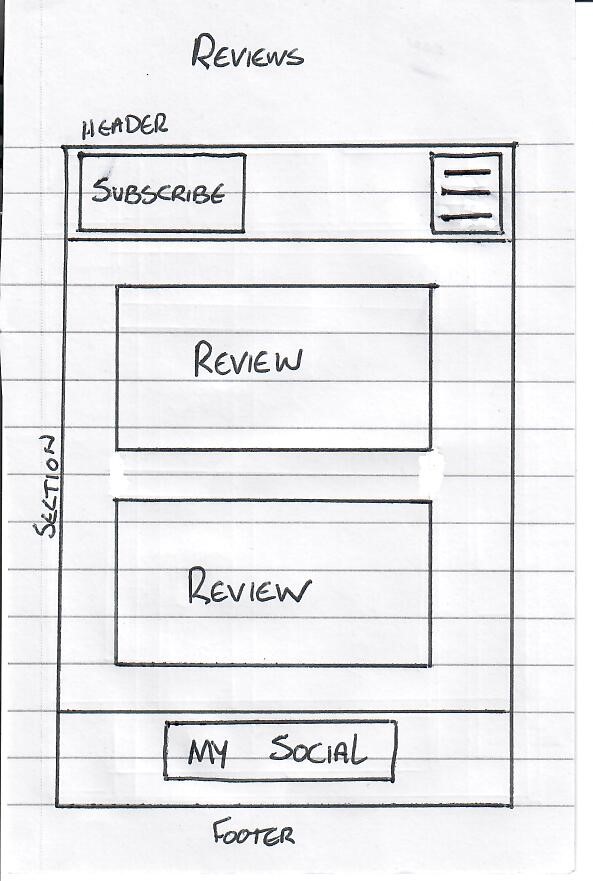 REVIEWS
HEADER
SUBSCRIBE
REVIEW
SECTION
REVIEW
MY SOCIAL
FOOTER